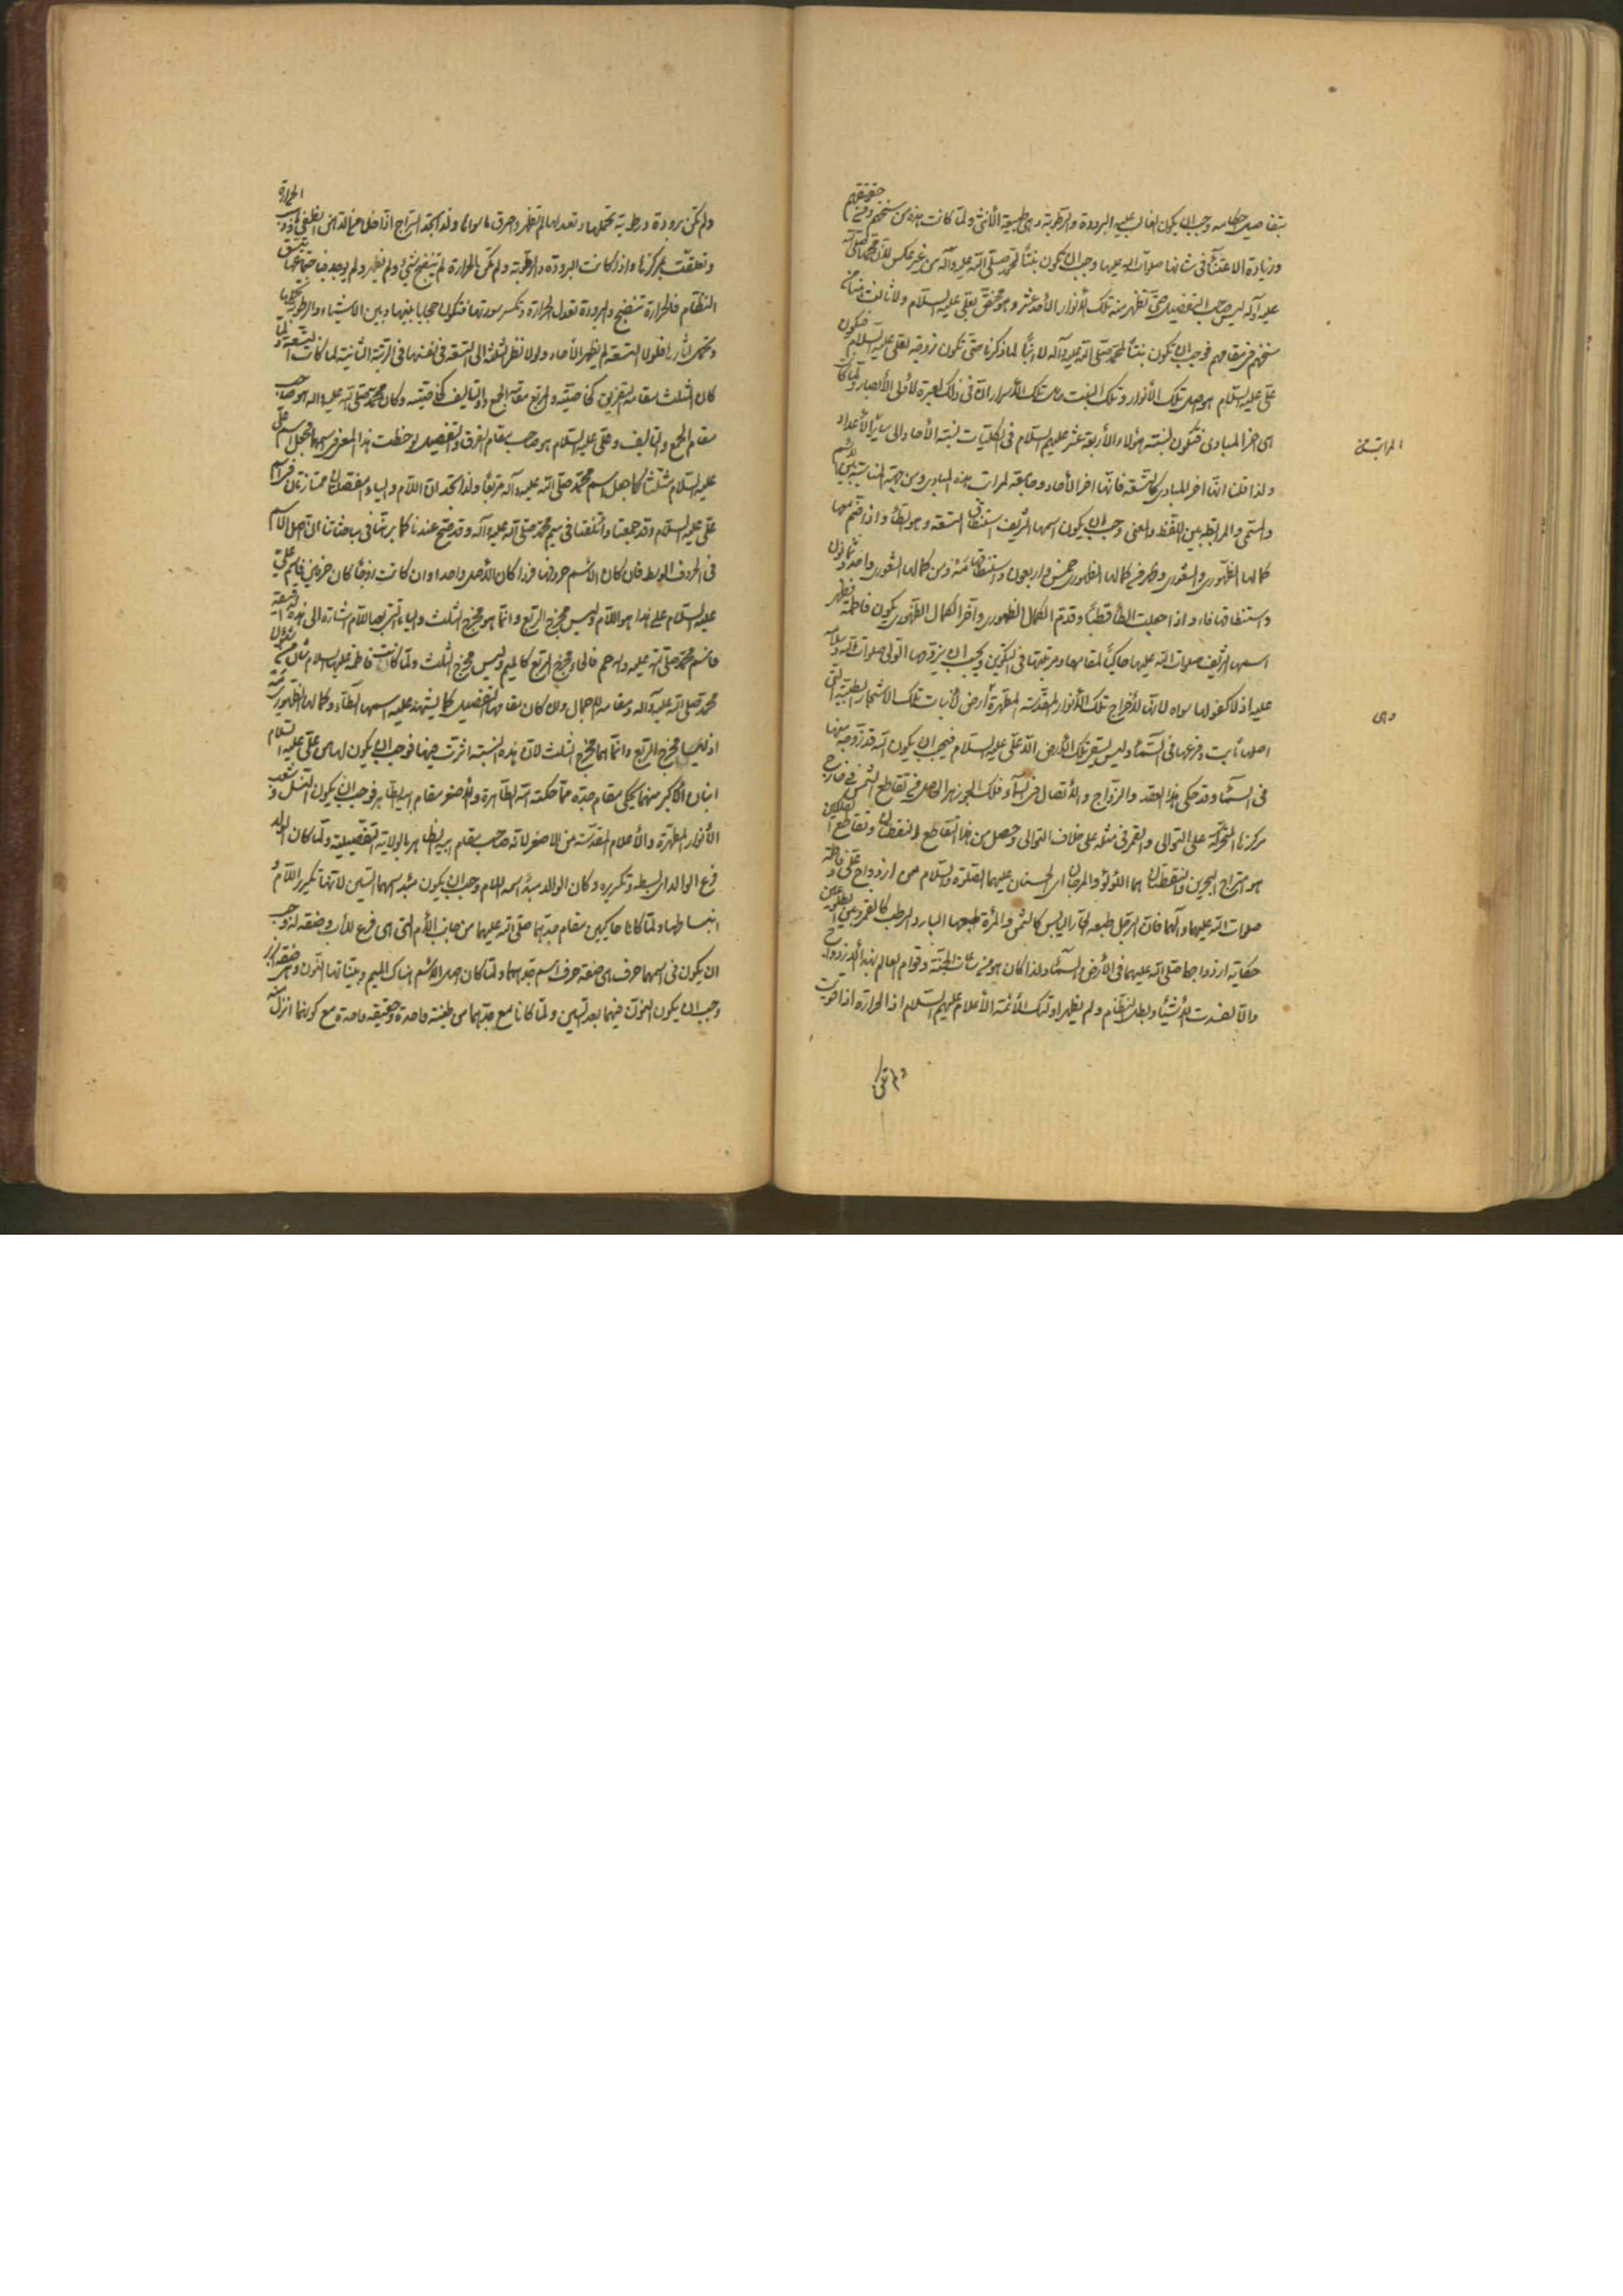 بتفاصيل حكامه وجب ان يكون الغالب عليه البرودة والرطوبة وهى طبيعة الأنثى ولما كانت هذه من سنخهم ومن حقيقتهم
وزيادة الاعتناء فى شانها صلوات الله عليها وجب ان يكون بنتاً لمحمد صلى الله عليه وآله من غير عكس لأن محمداً صلى الله
عليه وآله ليس صاحب التفصيل حتى تظهر منه تلك الأنوار الأحد عشر وهو مختص بعلى عليه السلام ولا ثالث هناك من
سنخهم فى مقامهم فوجب ان تكون بنتاً لمحمد صلى الله عليه وآله لا ابناً لما ذكرنا حتى تكون زوجة لعلى عليه السلام فيكون
على عليه السلام هو اصل تلك الأنوار وتلك البنت تلك الأسرار الا ان فى ذلك لعبرة لأولى الأبصار ولما كان
اى اخر المبادى فتكون نسبة هؤلاء الأربعة عشر عليهم السلام فى الكليات نسبة الأحاد الى ساير الأعداد
ولذا قلنا انها اخر المبادى كالتسعة فانها اخر الأحاد وجامعة لمراتب هذه المبادى ومن جهة المناسبة بين الاسم
والمسمى والمرابطة بين اللفظ والمعنى وجب ان يكون اسمها الشريف استنطاق التسعة وهو الطاء واذا ضم معها
كمالها الظهورى والشعورى وظرف كمالها الظهورى خمس واربعون واستنطاقها مه ومن كمالها الشعورى واحد وثمانون
واستنطاقها فاء واذا جعلت الطاء قطباً وقدم الكمال الشعورى وآخر الكمال الظهورى يكون فاطمة فظهر
اسمها الشريف صلوات الله عليها حاكياً لمقامها ومرتبتها فى التكوين ويجب ان يزوجها الولى صلوات الله وسلامه
عليه اذ لا كفو لها سواه لأنه لأخراج تلك الأنوار المقدسة المطهرة أرض لأنبات تلك الاشجار الطيبة التى
اصلها ثابت وفرعها فى السماء وليس يسقى تلك الأرض الا على عليه السلام فيجب ان يكون الله قد زوجه منها
فى السماء وقد حكى هذا العقد والزواج والأتصال فى السماء فلك الجوزهر الحاصل من تقاطع الشمس فى خارج
مركزها المتحركة على التوالى والقمر فى مثله على خلاف التوالى وحصل من هذا التقاطع النقطتان وتقاطع الفلكين
هو امتزاج البحرين والنقطتان هما اللؤلؤ والمرجان اى الحسنان عليهما الصلوة والسلام من ازدواج على وفاطمة
صلوات الله عليهما وآلهما فان الرجل طبعه الحار اليابس كالشمس والمرأة طبعها البارد الرطب كالقمر
حكاية ازدواجهما صلى الله عليهما فى الأرض والسماء ولذا كان هو من ساعات الجنة وقوام العالم بهذا الأزدواج
والا لفسدت الأشياء وبطل النظام ولم يظهر اولئك الأئمة الأعلام عليهم السلام اذ الحرارة اذا قويت
المراتب
وهى
ولم تكن برودة ورطوبة تحملها وتعدلها لم تظهر واحرق ما سواها ولذا تجد السراج اذا خلى من الدهن انطفى واذا ذهبت الحرارة
وتعلقت بمركزها واذا كانت البرودة والرطوبة ولم تكن الحرارة لم تنضج شيئ ولم يظهر ولم يوجد فباجتماعهما يتسق
النظام فالحرارة تنضج والبرودة تعدل الحرارة وتكسر سورتها فتكون حجابا بينها وبين الاشياء والرطوبة تحملها
وتحمل اثارها فلولا التسعة لم يظهر الأحاد ولولا نظر الثلثة الى التسعة فى نفسها فى الرتبة الثانية لما كانت التسعة ولما
كان المثلث مقامه التفريق كخاصيته والمربع مقامه الجمع والتاليف كخاصيته وكان محمد صلى الله عليه واله هو صاحب
مقام الجمع والتاليف وعلى عليه السلام هو صاحب مقام الفرق والتفصيل لوحظت هذا المعنى فى اسمهما فجعل اسم على
عليه السلام مثلثا كما جعل اسم محمد صلى الله عليه وآله مربعاً ولذا تجد ان اللام والياء منفصلتان ممتازتان فى اسم
على عليه السلام وقد جمعتا وائتلفتا فى ميم محمد صلى الله عليه وآله وقد صح عندنا كما برهنا فى مباحثاتنا ان اصل الاسم
فى الحروف الوسط فان كان الاسم حروفها فردا كان الأصل واحدا وان كانت ازواجاً كان حرفين فاسم على
عليه السلام على هذا هو اللام وليس مخرج الربع وانما هو مخرج الثلث والياء التى بعد اللام اشارة الى هذه الدقيقة
واسم محمد صلى الله عليه واله حم فالحاء مخرج الربع كالميم وليس مخرج الثلث ولما كانت فاطمة عليها السلام شأن من شئون
محمد صلى الله عليه وآله ومقامه الاجمال وان كان مقامها التفصيل كما يشهد عليه اسمها الطاء وكمالها الظهورى مه
اذ ليسا مخرج الربع وانما هما مخرج الثلث لأن هذه النسبة اثرت فيها فوجب ان يكون لها من على عليه السلام
ابنان الأكبر منهما يحكى مقام جده مما حكمته الطاهرة والأصغر مقام ابيه فوجب ان يكون النسل وشعب
الأنوار المطهرة والأعلام المقدسة من الاصغر لانه صاحب مقام ابيه الظاهر بالولاية التفصيلية ولما كان الولد
فرع الوالد اى بسطه وتكريره وكان الوالد مبدأ اسمه اللام وجب ان يكون مبدء اسمهما السين لانها تكرير اللام
انبساطها ولما كانا حاكيين مقام جدهما صلى الله عليهما من جانب الأم التى هى فرع للأب وضعفه له وجب
ان يكون فى اسمهما حرف هى ضعف حرف اسم جدهما ولما كان اصل الاسم هناك الميم وبيناتها النون
وجب ان يكون النون فيهما بعد السين ولما كانا مع جدهما من طينة واحدة وحقيقة واحدة مع كونهما انزل